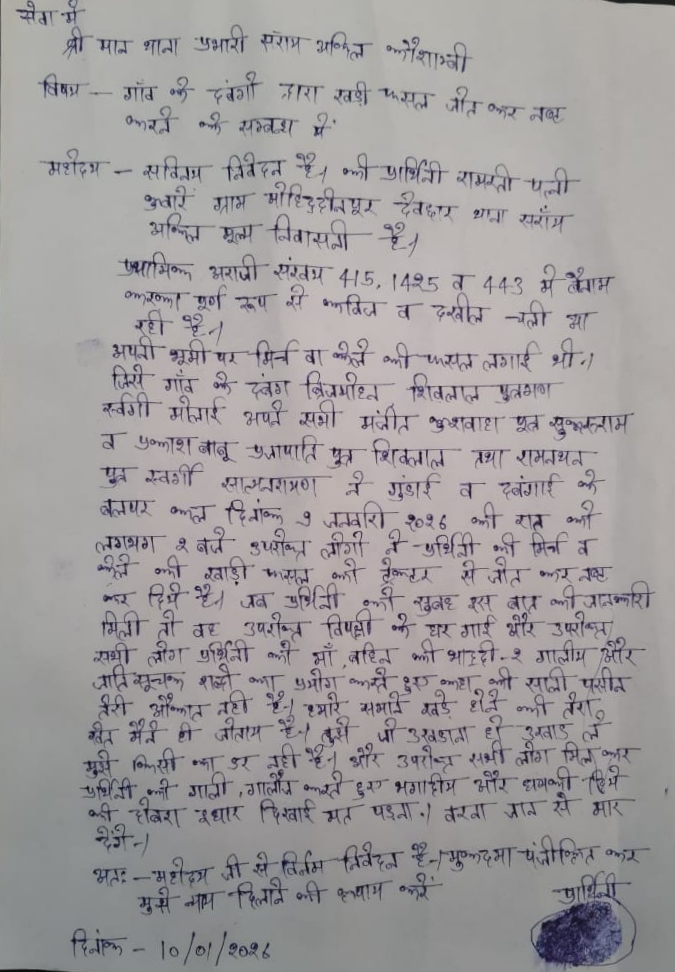 सेवा में
श्री मान थाना प्रभारी सराय अकिल कौशाम्बी
विषय - गाँव के दबंगो द्वारा खड़ी फसल जोत कर नष्ट
करने के सम्बन्ध में
महोदय - सविनय निवेदन है। की प्रार्थिनी रामरती पत्नी
कुवारे ग्राम मोहिद्दीनपुर देवछार थाना सराँय
अकिल मूल्य निवासनी है।
अराजी संख्य 415, 1425 व 443 मे बैनाम
पूर्ण रूप से काबिज व दखील चली आ
रही है।
अपनी भूमी पर मिर्च वा केले की फसल लगाई थी।
जिसे गाँव के दबंग ब्रिजमोहन, शिवलाल पुत्रगण
स्वर्गी मोलाई अपने सभी मंजीत कुशवाहा पुत्र
व प्रकाश बाबू प्रजापति पुत्र शिवलाल तथा रामनयन
पुत्र स्वर्गी सात्यनरायण ने गुंडाई व दबंगाई के
बलपर कल दिनांक 9 जनवरी 2026 की रात को
लगभग 2 बजे उपरोक्त लोगो ने प्रर्थिनी की मिर्च व
केले की खाड़ी फसल को टेक्टर से जोत कर नष्ट
कर दिये है। जब प्रर्थिनी को सुबह इस बात की जानकारी
मिली तो वह उपरोक्त विपक्षी के घर गाई और उपरोक्त
सभी लोग प्रर्थिनी को माँ, बहिन की भाद्दी-2 गालीय और
जाति सूचक शब्दो का प्रयोग करते हुए कहा की साली पासीन
तेरी औकात नही है। हमारे सामने खड़े होने की तेरा
खेत मैने ही जोताय है। तुझे जो उखड़ाना हो उखाड़ ले
मुझे किसी का डर नही है। और उपरोक्त सभी लोग मिल कर
प्रर्थिनी को गाली, गालौज करते हुए भगादीय और धमकी दिये
की दोबरा इधार दिखाई मत पड़ना। वरना जान से मार
देंगे।
अतः - महोदय जी से निवेदन है। मुकदमा पंजीक्रित कर
मुझे न्याय दिलाने की कृपाय करें
प्रार्थिनी
दिनांक - 10/01/2026